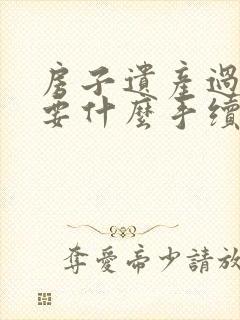 房子遺產過
要什麼手續
奪愛帝少請放